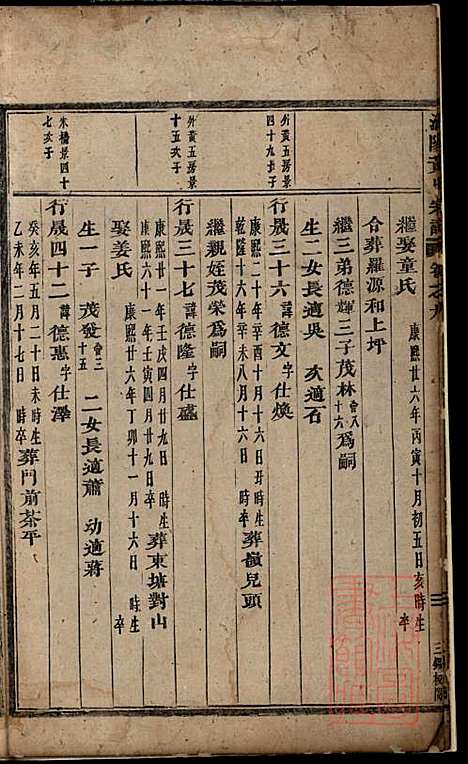 繼娶童氏 康熙廿六年丙寅十月初五日亥時生 卒
合葬羅源和上坪
繼三弟德輝三子茂林會八十六爲嗣
生二女長適吳 次適石
外黃五房景四十九長子
行晟三十六諱德文字仕煥
康熙二十年辛酉十月十六日丑時生
乾隆十六年辛未八月十六日 時卒
葬嶺兒頭
繼親姪茂榮爲嗣
外黃五房景十五次子
行晟三十七諱德隆字仕盛
康熙廿一年壬戌四月廿九日 時生
康熙六十一年壬寅四月廿九日卒
葬東塘對山
娶姜氏 康熙廿六年丁卯十一月十六日 時生 卒
生一子 茂發會三十五 二女長適蕭 幼適蔣
木橋景四十七次子
行晟四十二諱德惠字仕澤
癸亥年五月二十日未時生
乙未年二月十七日 時卒
葬門前茶平